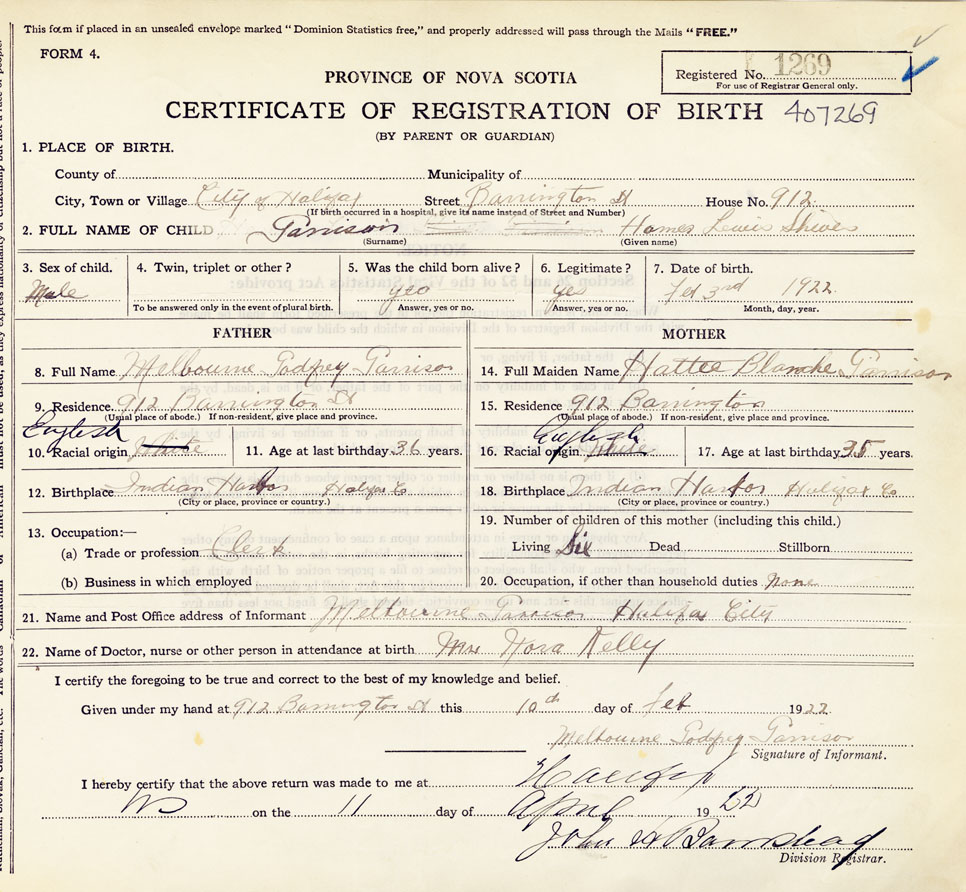 This form if placed in an unsealed envelope marked "Dominion Statistics free," and properly addressed will pass through the Mails "FREE."
FORM 4.
PROVINCE OF NOVA SCOTIA
Registered No. 1269
For use of Registrar General only.
CERTIFICATE OF REGISTRATION OF BIRTH 407269
(BY PARENT OR GUARDIAN)
1. PLACE OF BIRTH.
County of Municipality of
City, Town or Village City of Halifax Street Barrington St House No. 912
(If birth occurred in a hospital, give its name instead of Street and Number)
2. FULL NAME OF CHILD Garrison Lewis
(Surname) (Given name)
3. Sex of child. 4. Twin, triplet or other? 5. Was the child born alive? 6. Legitimate? 7. Date of birth.
Male yes yes Feb 3rd 1922
To be answered only in the event of plural birth. Answer, yes or no. Answer, yes or no. Month, day, year.
FATHER MOTHER
8. Full Name Melbourne Godfrey Garrison 14. Full Maiden Name Hattee Blanche Garrison
9. Residence 912 Barrington St 15. Residence 912 Barrington
(Usual place of abode.) If non-resident, give place and province. (Usual place of abode.) If non-resident, give place and province.
English English
10. Racial origin White 11. Age at last birthday 36 years. 16. Racial origin White 17. Age at last birthday 35 years.
12. Birthplace Indian Harbor Halifax Co 18. Birthplace Indian Harbor Halifax Co
(City or place, province or country.) (City or place, province or country.)
13. Occupation:— 19. Number of children of this mother (including this child.)
(a) Trade or profession Clerk Living Six Dead Stillborn
(b) Business in which employed 20. Occupation, if other than household duties none
21. Name and Post Office address of Informant Melbourne Garrison Halifax City
22. Name of Doctor, nurse or other person in attendance at birth Mrs Nora Kelly
I certify the foregoing to be true and correct to the best of my knowledge and belief.
Given under my hand at 912 Barrington St this 10th day of Feb 1922
Melbourne Godfrey Garrison
Signature of Informant.
I hereby certify that the above return was made to me at Halifax
NS on the 11 day of April 1922
John A Barnstead
Division Registrar.